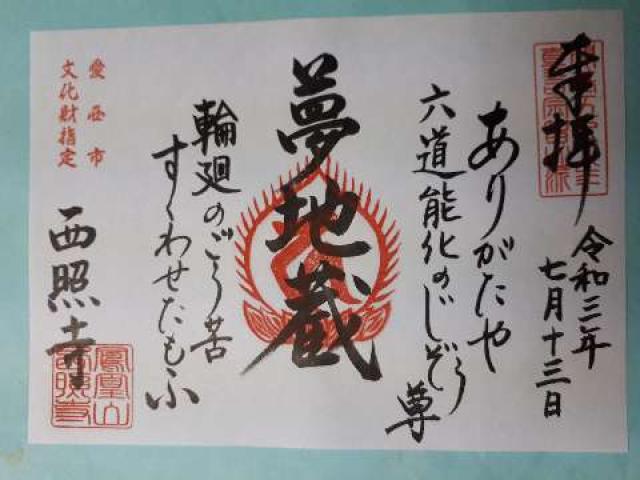 奉拝
令和三年
七月十三日
ありがたや
六道能化のじぞう
尊
夢地蔵
輪廻のごう苦
すくわせたもふ
愛西市
文化財指定
西照寺
鳳凰山
西照寺